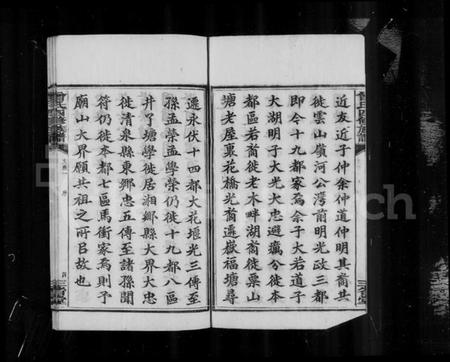 近友近子仲余仲道仲明其裔共
徙雲山嶺河公灣前明光政三都
即今十九都家焉余子大若道子
大湖明子大光大忠避亂分徙本
都區若裔徙老木畔湖裔徙棠山
塘老屋裏花橋光裔遷嶽福塘尋
遷永伏十四都大花堰光三傳至
孫孟榮孟學榮仍徙十九都八區
井了塘學徙居湘鄉縣大界大忠
徙清泉縣東鄉忠五傳至諸孫聞
符仍徙本都七區馬衝家焉則予
廟山大界願共祖之所自故也